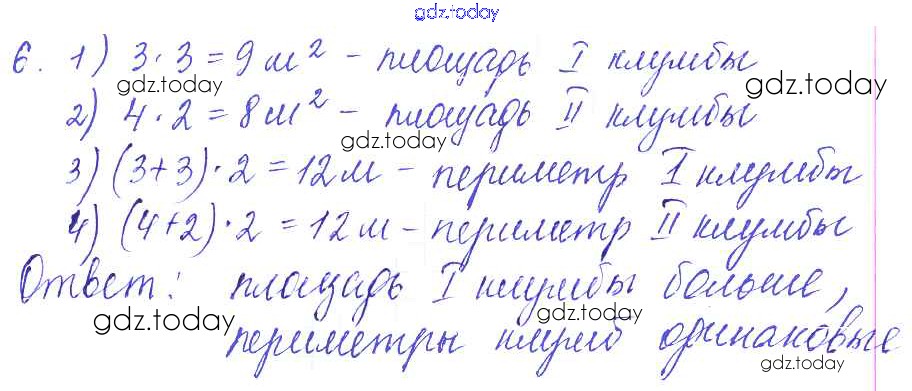 gdz.today
6. 1) 3 · 3 = 9 м² – площадь I клумбы
gdz.today gdz.today
2) 4 · 2 = 8 м² – площадь II клумбы
gdz.today
3) (3+3) · 2 = 12 м – периметр I клумбы
4) (4+2) · 2 = 12 м – периметр II клумбы
gdz.today gdz.today
Ответ: площадь I клумбы больше,
gdz.today gdz.today
периметры клумб одинаковые
gdz.today